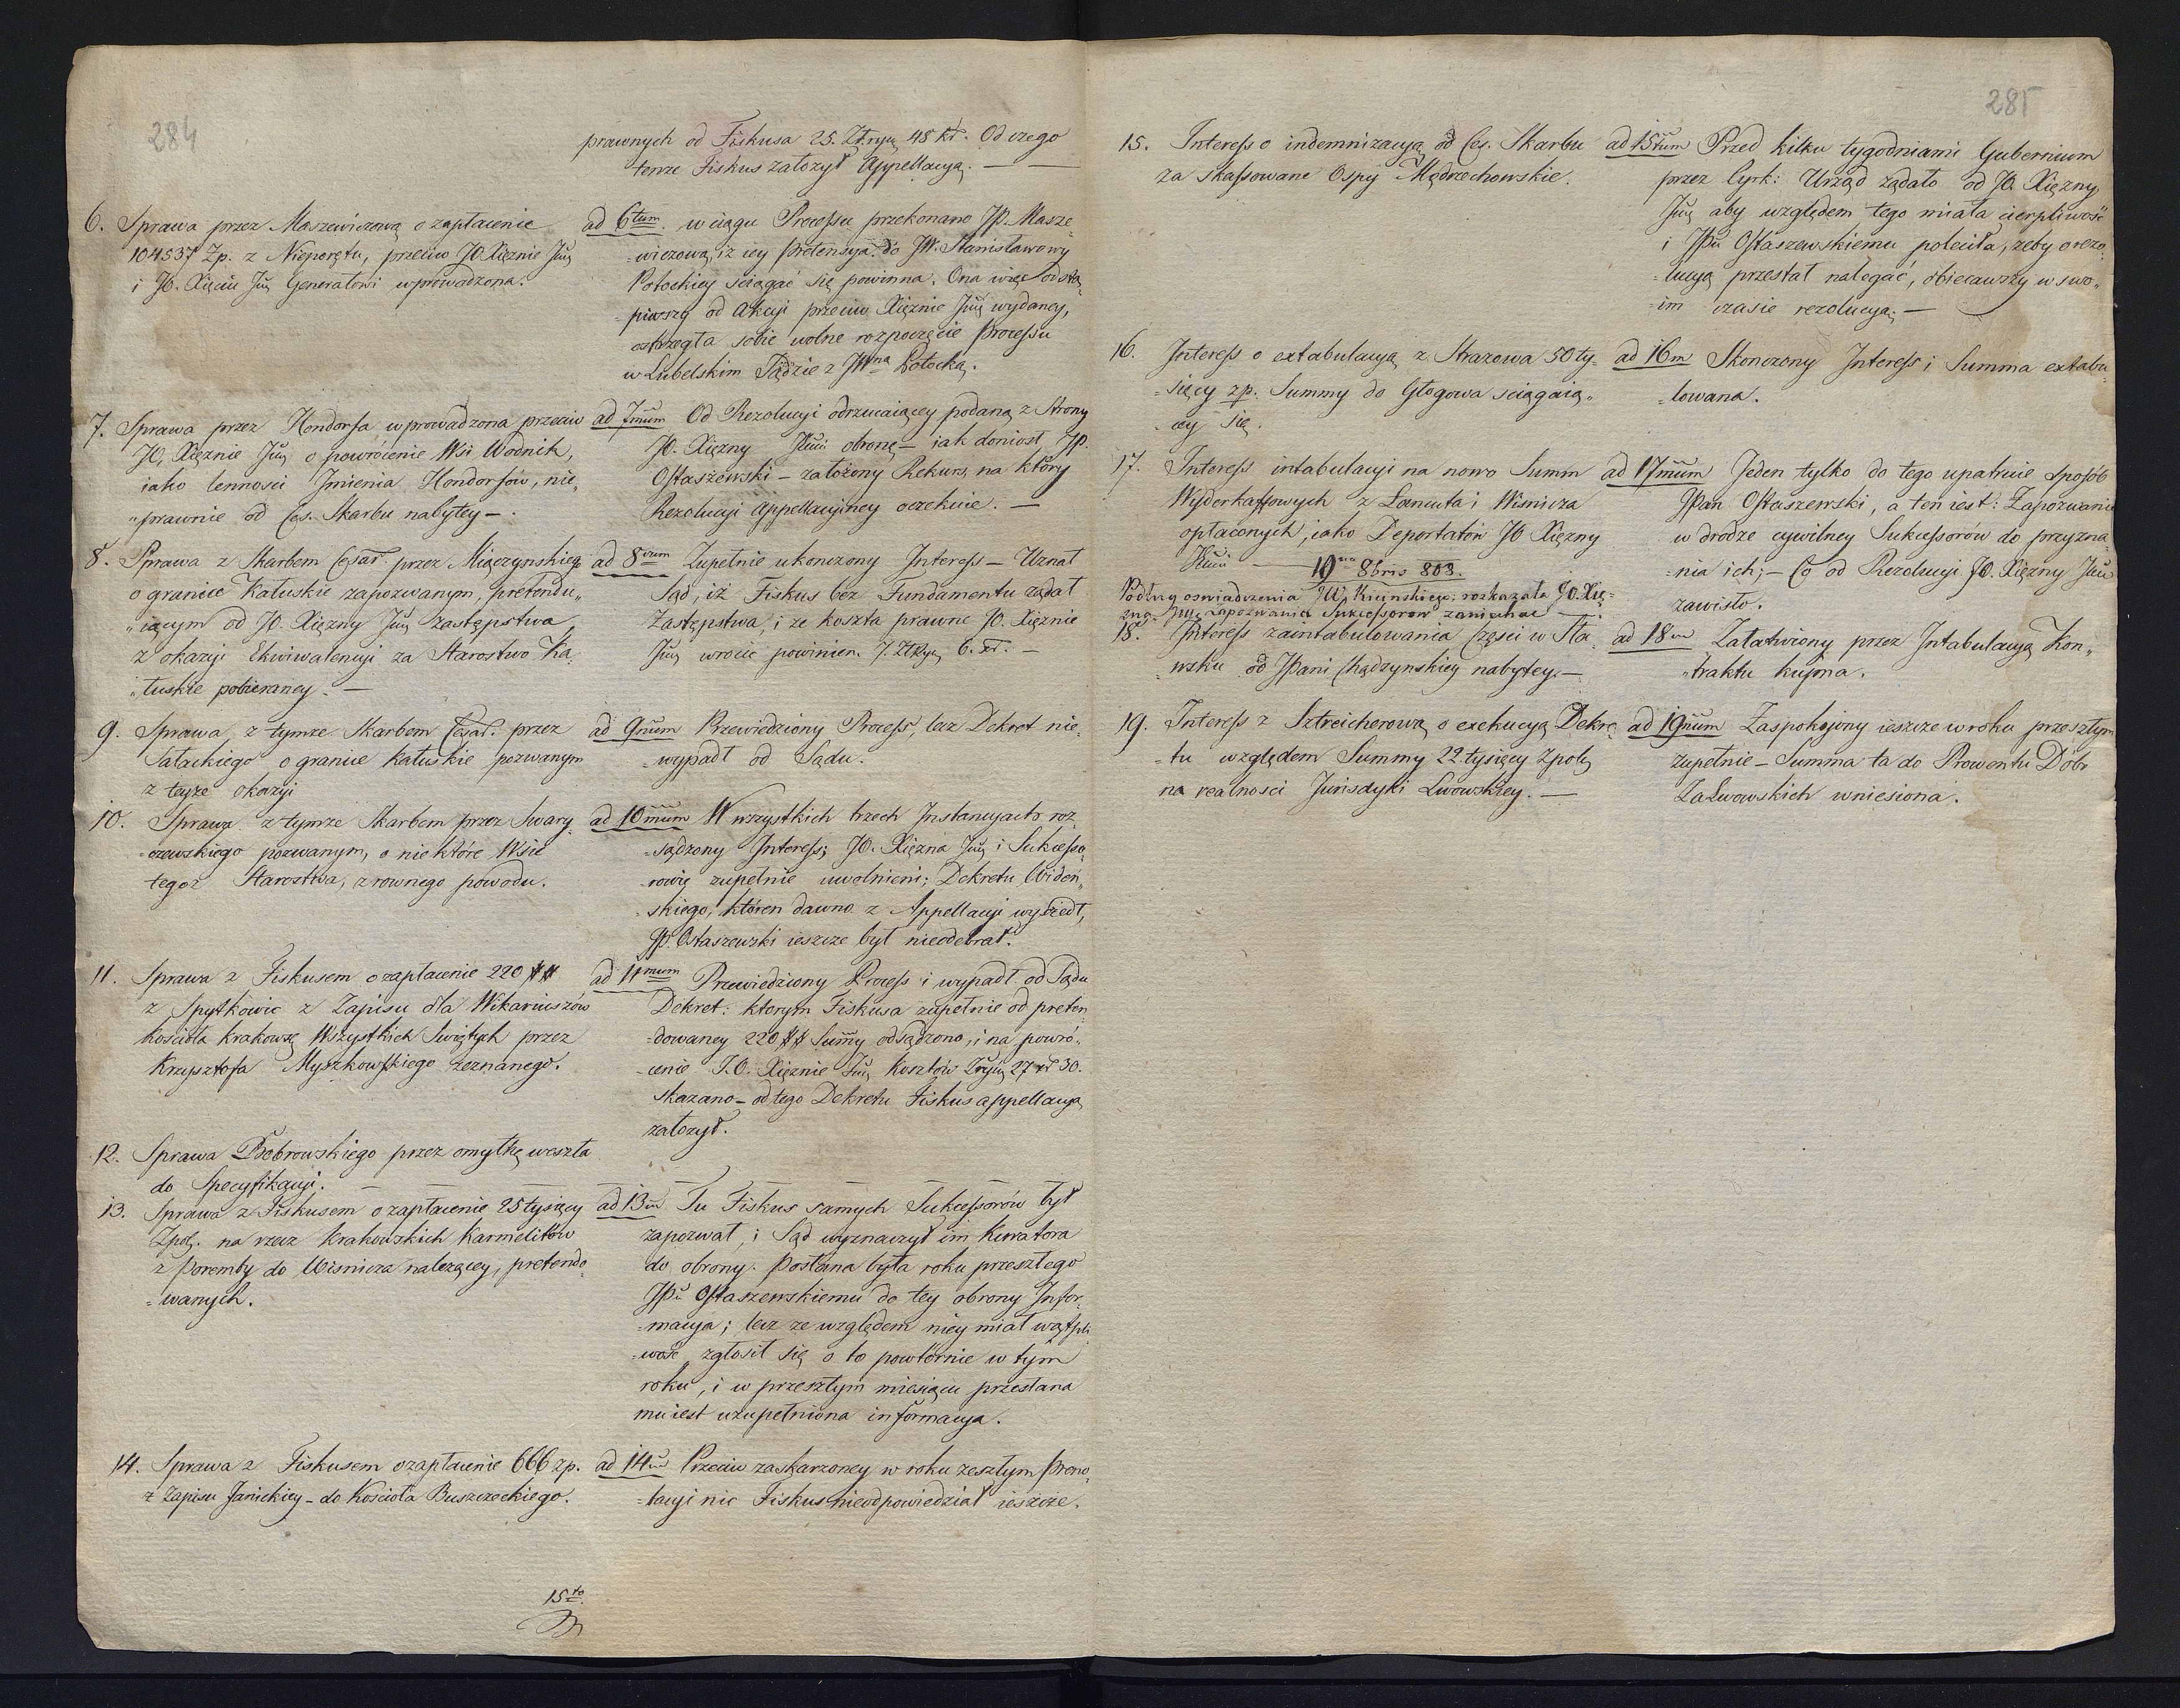 284
prawnych od Fiskusa 25. Złryn. 48 kr. Od czego
tenze Fiskus założył Appellacyą. —
6. Sprawa przez Maszewiczową o zapłacenie
104537 Zp. z Nieporętu, przeciw JO. Xiężnie Jmci
i JO. Xięciu Jmci Generałowi wprowadzona.
ad 6tum. w ciągu Processu przekonano JP. Masze-
=wiczową, iż iey pretensya do JW. Stanisławowy
Potockiey ściągać się powinna. Ona więc odstą-
=piwszy od Akcyi przeciw Xiężnie Jmci wydaney,
ostrzegła sobie wolne rozpoczęcie Processu
w Lubelskim Sądzie z JWną Potocką.
7. Sprawa przez Hondorfa wprowadzona przeciw
JO. Xiężnie Jmci o powrócenie Wsi Wodnik,
iako lenności Imienia Hondorfów, nie-
=prawnie od Ces. Skarbu nabytey —.
ad 7mum Od Rezolucyi odrzucaiącey podaną z Strony
JO. Xiężny Jmci obronę — iak doniosł JP.
Ostaszewski — założony Rekurs, na który
Rezolucyi Appellacyiney oczekuie. —
8. Sprawa z Skarbem Cesar. przez Miączynskiego
o granice Kałuskie zapozwanym, pretendu-
=iącym od JO. Xiężny Jmci zastępstwa,
z okazyi Ekwiwalencyi za Starostwo Ka-
=łuskie pobieraney. —
ad 8vum Zupełnie ukonczony Interess — Uznał
Sąd, iż Fiskus bez Fundamentu ządał
Zastępstwa, i ze koszta prawne JO. Xiężnie
Jmci wrócić powinien. 7. ZłRyn. 6. xr. —
9. Sprawa z tymze Skarbem Cesar. przez
Satackiego o granice Kałuskie pozwanym
z teyze okazyi
ad 9num Przewiedziony Process, lecz Dekret nie-
=wypadł od Sądu.
10. Sprawa z tymze Skarbem przez Swary-
=czewskiego pozwanym, o nie które Wsie
tegoz Starostwa, z rownego powodu.
ad 10mum W wszystkich trzech Instancyach roz-
=sądzony Interess; JO. Xiężna Jmci i Sukcesso-
=rowie zupełnie uwolnieni; Dekretu Wideń-
=skiego, któren dawno z Appellacyi wyszedł,
JP. Ostaszewski ieszcze był nieodebrał.
11. Sprawa z Fiskusem o zapłacenie 220 ##
z Spytkowic z Zapisu dla Wikariuszów
kościoła krakowsg Wszystkich Swiętych przez
Krzysztofa Myszkowskiego zeznanego.
ad 11mum Przewiedziony Process i wypadł od Sądu
Dekret: ktorym Fiskusa zupełnie od preten-
=dowaney 220 ## Summy odsądzono, i na powró-
=cenie J.O. Xiężnie Jmci Kosztów Zryn. 27 xr 30.
Skazano — od tego Dekretu Fiskus appellacyą
założył.
12. Sprawa Bobrowskiego przez omyłkę weszła
do Specyfikacyi. —
13. Sprawa z Fiskusem o zapłacenie 25 tysięcy
Zpol. na rzecz krakowskich Karmelitów
z Poremby do Wisnicza nalezącey, pretendo-
=wanych.
ad 13m Tu Fiskus samych Sukcessorów był
zapozwał, i Sąd wyznaczył im Kuratora
do obrony. Posłana była roku przeszłego
JPu Ostaszewskiemu do tey obrony Infor-
=macya; lecz ze względem niey miał wątpli-
=wość, zgłosił się o to powtórnie w tym
roku, i w przeszłym miesiącu przesłana
mu iest uzupełniona informacya.
14. Sprawa z Fiskusem o zapłacenie 666 zp.
z Zapisu Janickiey — do Kościoła Buszczeckiego.
ad 14m Przeciw zaskarzoney w roku zeszłym Preno-
=tacyi nic Fiskus nieodpowiedział ieszcze.
15to
285
15. Interess o indemnizacyą od Ces. Skarbu
za skassowane Ospy Mędrzechowskie.
ad 15tum Przed kilku tygodniami Gubernium
przez Cyrk: Urząd ządało od JO. Xiężny
Jmci aby względem tego miała cierpliwość
i JPu Ostaszewskiemu poleciła, zeby o rezo-
=lucyą przestał nalegać, obiecawszy w swo-
=im czasie rezolucyą; —
16. Interess o extabulacyą z Strazowa 50 ty-
=sięcy zp. Summy do Głogowa sciągaią-
=cey się.
ad 16m Skonczony Interess i Summa extabu-
=lowana.
17. Interess intabulacyi na nowo Summ
Wyderkaffowych z Łancuta i Wisnicza
opłaconych, iako Deportatów JO Xiężny
Jmci — 19na 8bris 803.
Podług oswiadczenia JW. Kicinskiego: rozkazała JO. Xię-
zna Jmć zapozwania Sukcessorow zaniechac —
ad 17mum Jeden tylko do tego upatruie sposób
JPan Ostaszewski, a ten iest: Zapozwanie
w drodze cywilney Sukcessorów do przyzna-
=nia ich; — Co od Rezolucyi JO. Xiężny Jmci
zawisło.
18. Interess zaintabulowania Części w Sta-
=wsku od JPani Chądzynskiey nabytey. —
ad 18m Załatwiony przez Intabulacyą Kon-
=traktu kupna.
19. Interess z Sztreicherową o exekucyą Dekre-
=tu względem Summy 22 tysięcy Zpol.
na realnosci Jurisdyki Lwowskiey. —
ad 19num Zaspokojony ieszcze w roku przeszłym
zupełnie — Summa ta do Prowentu Dobr
ZaLwowskich wniesiona.